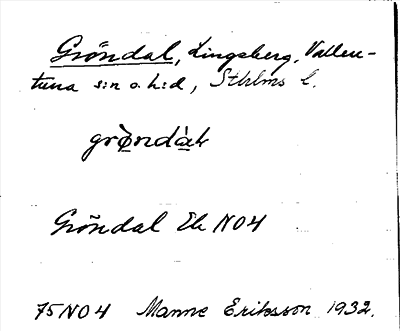 Gröndal, Lingsberg, Vallen-
tuna s:n o. h:d, Sthlms l.
Gröndal Ek NO4
75NO4 Manne Eriksson 1932.